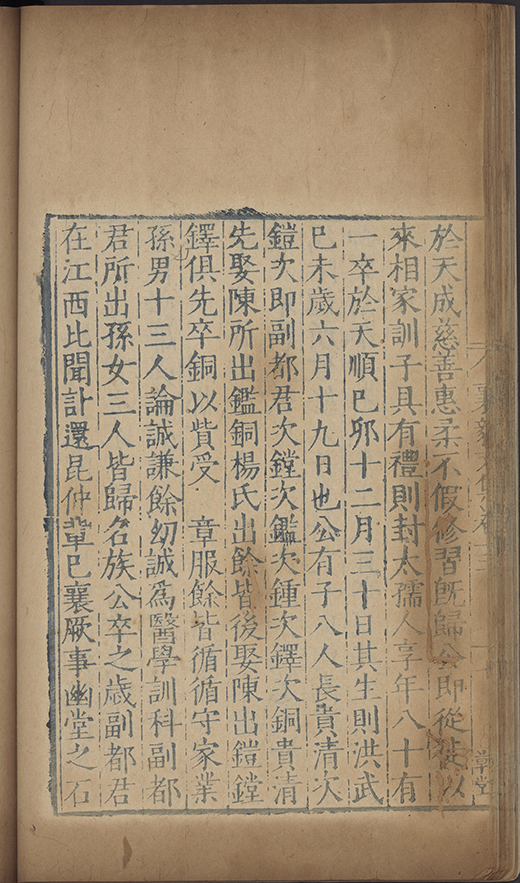 於天成慈善惠柔不假修習旣歸公即從徙以
來相家訓子具有禮則封太孺人享年八十有
一卒於天順己卯十二月三十日其生則洪武
己未歲六月十九日也公有子八人長貴清次
鎧次即副都君次鏜次鑑次鍾次鐸次銅貴清
先娶陳所出鑑銅楊氏出餘皆後娶陳出鎧鏜
鐸俱先卒銅以貲受 章服餘皆循循守家業
孫男十三人論誠謙餘幼誠爲醫學訓科副都
君所出孫女三人皆歸名族公卒之歲副都君
在江西比聞訃還昆仲輩已襄厥事幽堂之石